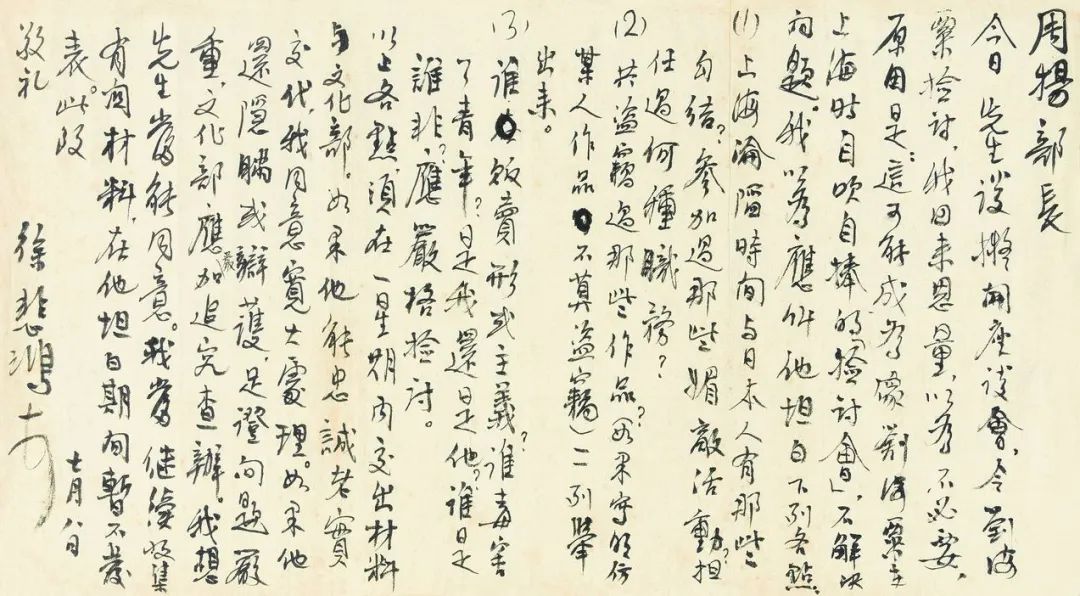 周揚部長
今日 先生談擬開座談會，令劉海
粟檢討，我回来思量，以为不必要，
原因是：這可能成为像劉海粟在
上海時自吹自捧的“檢討會”，不解决
问題。我以为應叫他坦白下列各點
(1) 上海淪陷時间与日本人有那些
勾结？參加過那些媚敵活動？担
任過何種職務？
(2) 共盜竊過那些作品？（如果寫明仿
某人作品不算盜竊）一一列舉
出来。
(3) 誰販賣形式主義？誰毒害
了青年？是我還是他？誰是
誰非？應嚴格檢討。
以上各點須在一星期内交出材料
与文化部。如果他能忠誠老實
交代，我同意寬大處理。如果他
還隱瞞或辯護，足證问題嚴
重，文化部應嚴加追究查辦。我想
先生當能同意。我當继續收集
有関材料，在他坦白期间暫不發
表。此致
敬礼
徐悲鴻
七月八日